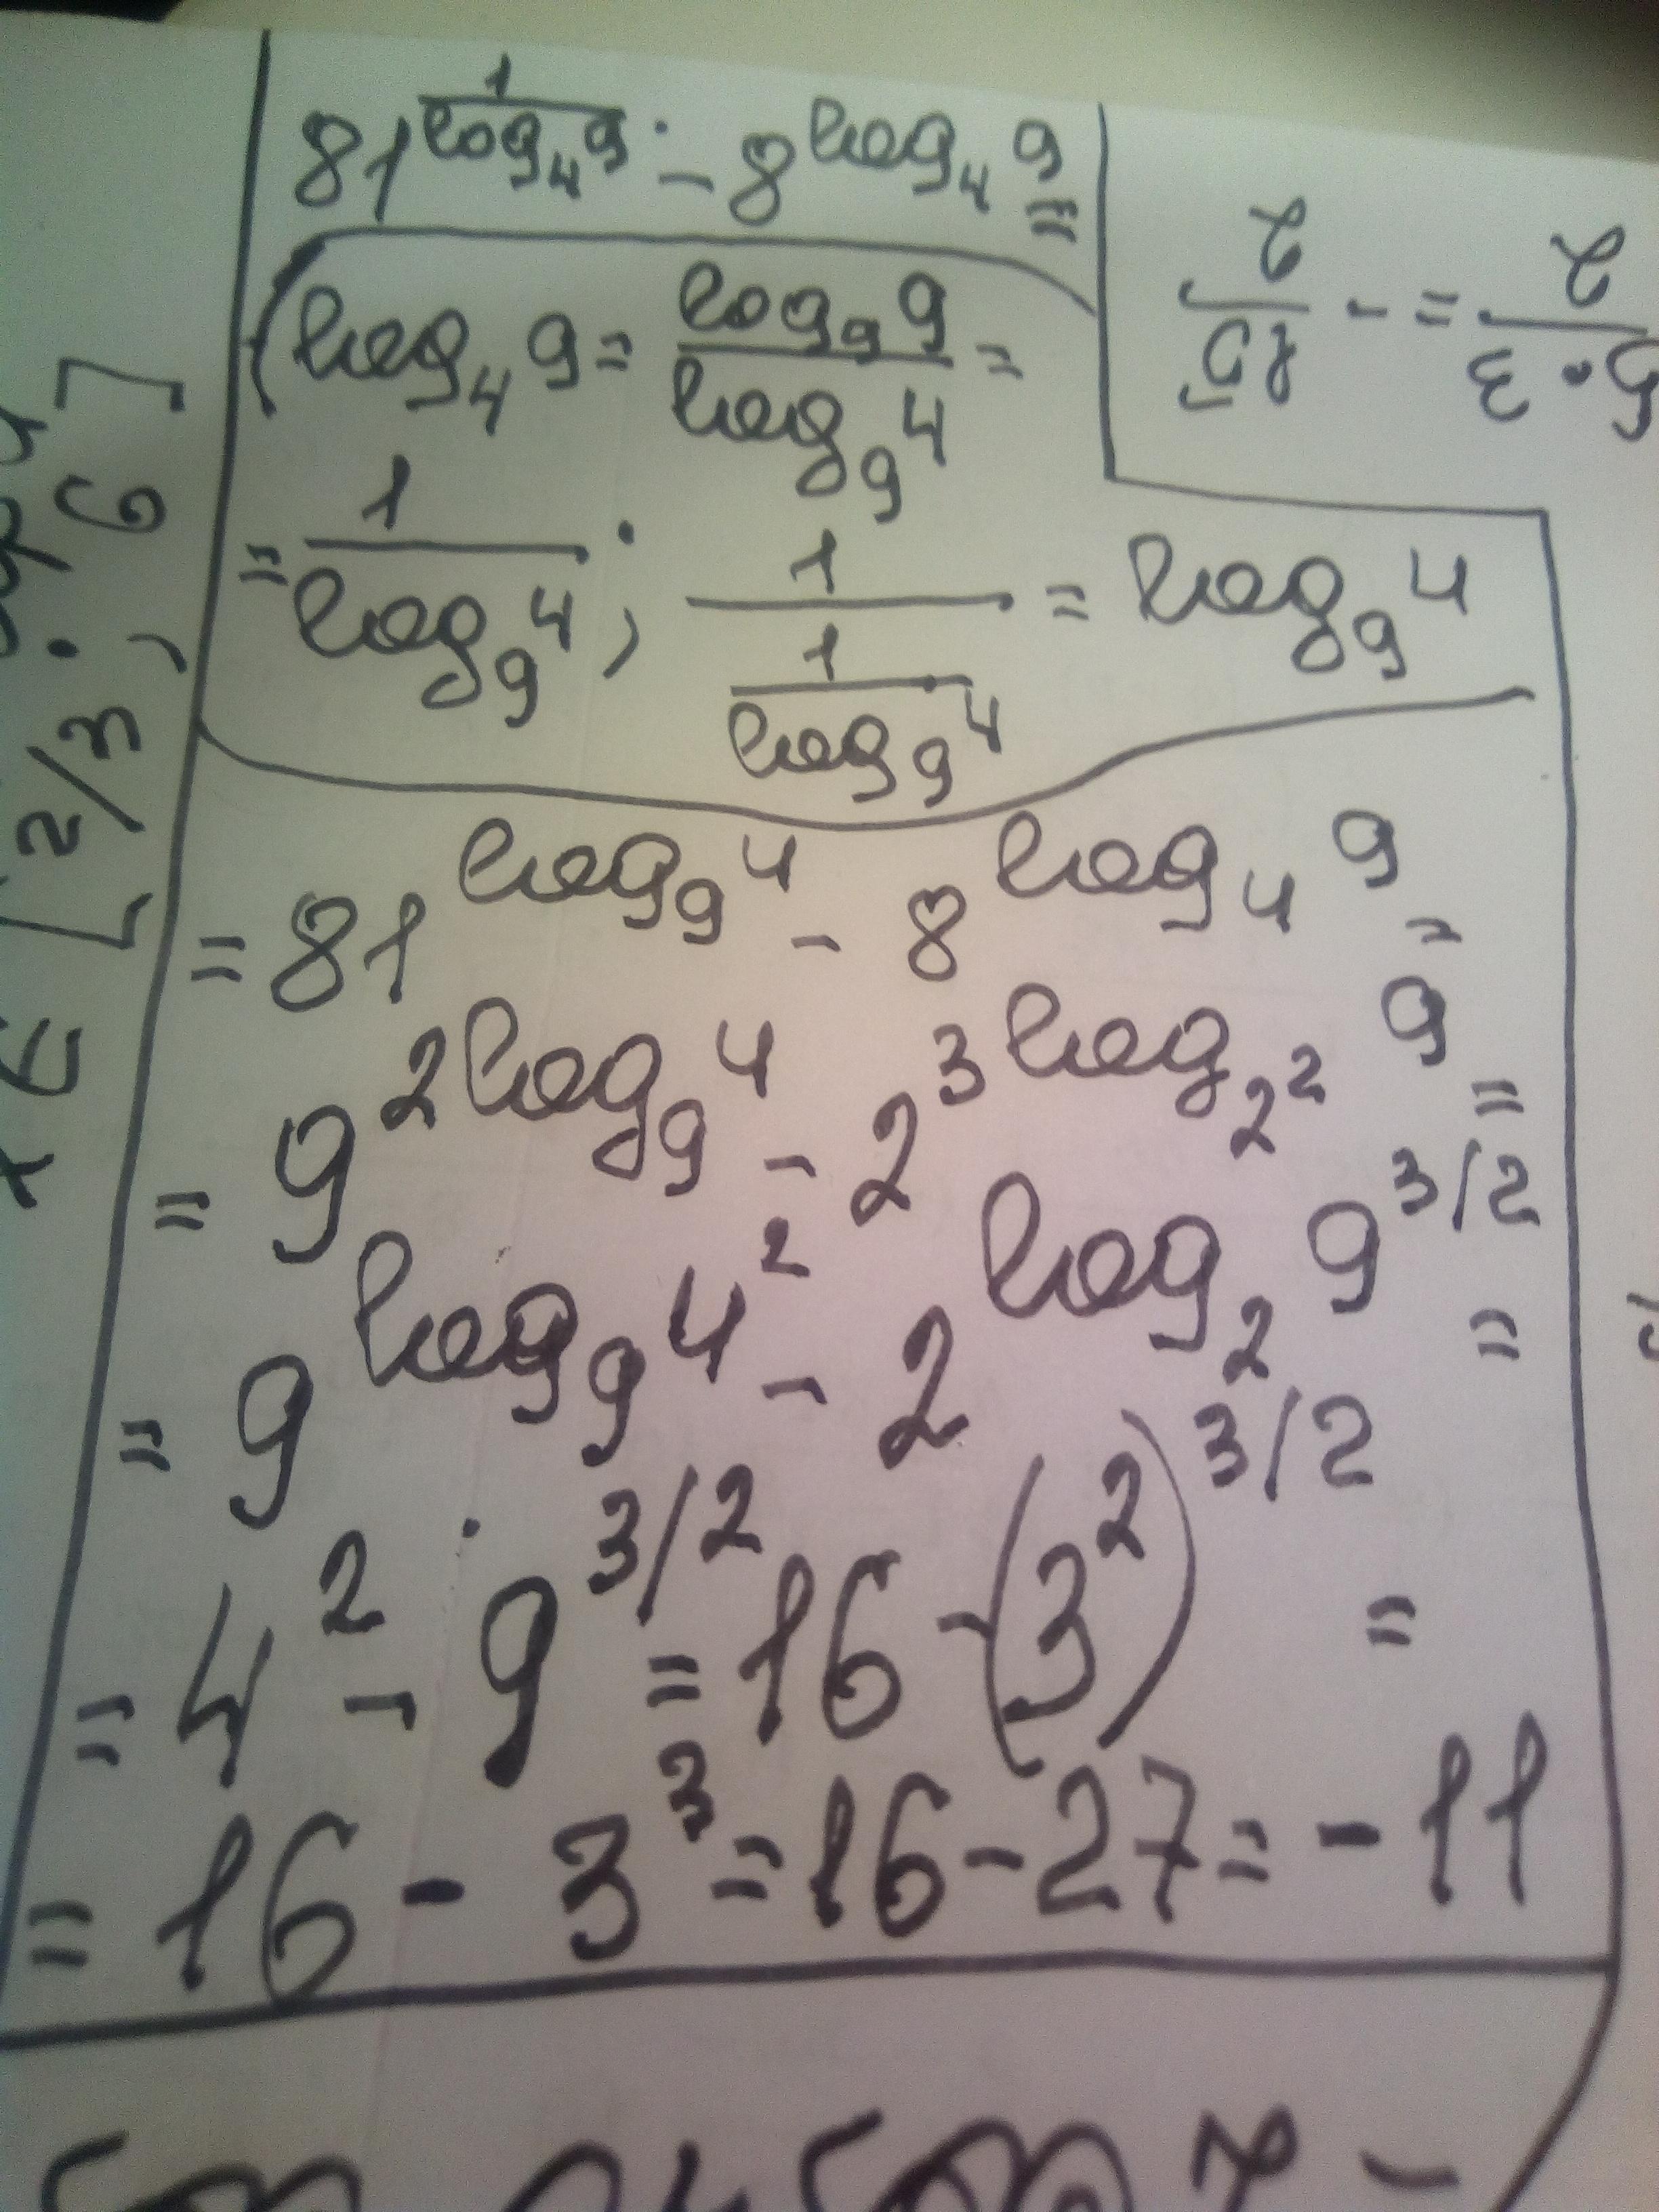 81^(1/log₄9) - 8^(log₄9) =
(log₄9 = log₉9/log₉4 =
= 1/log₉4; 1/(1/log₉4) = log₉4
= 81^(log₉4) - 8^(log₄9) =
= 9^(2log₉4) - 2^(3log_(2²)9) =
= 9^(log₉4²) - 2^(log₂9^(3/2)) =
= 4² - 9^(3/2) = 16 - (3²)^(3/2) =
= 16 - 3³ = 16 - 27 = -11
[2/3; 6]